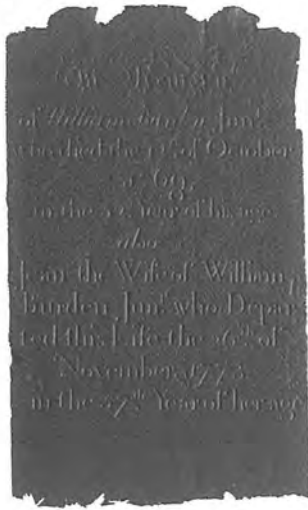 In Memory
of William burden Junr.
who died the 15th of October
1769
in the Year of his age
Also
Jean the Wife of William
burden Junr. who Depar
ted this Life the 26th of
November 1773
in the 37th Year of her age